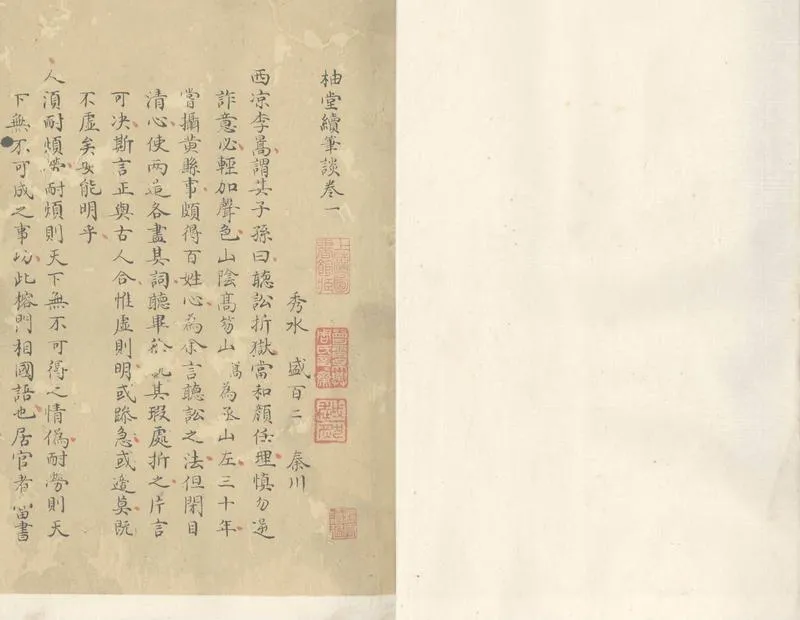 柚堂續筆談卷一
秀水 盛百二 秦川
西凉李暠謂其子孫曰聽訟折獄當和顔任理慎勿逆
詐意必輕加聲色山陰髙笏山 為丞山左三十年
嘗攝黄縣事頗得百姓心為余言聽訟之法但閉目
清心使两造各盡其詞聽畢於其瑕處折之片言
可决斯言正與古人合惟虚則明或躁急或邊莫既
不虚矣安能明乎
人須耐煩勞耐煩則天下無不可得之情偽耐勞則天
下無不可成之事此榕門相國語也居官者當書